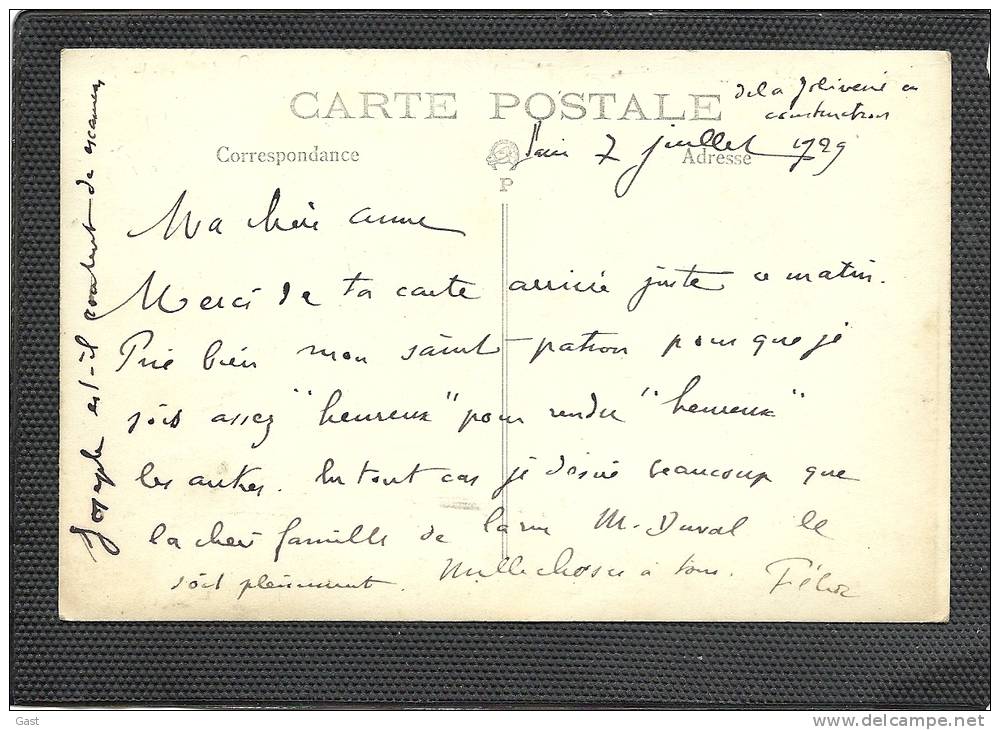 CARTE POSTALE
de la en
construction
Correspondance
Adresse
Paris 7 juillet 1929
Ma chère anne
Merci de ta carte arrivée juste ce matin.
Prie bien mon saint patron pour que je
sois assez "heureux" pour rendre "heureux"
les autres. En tout cas je désire beaucoup que
la chère famille de la rue M. Duval le
soit pleinement. Mille choses à tous. Félix
Joseph est-il content de examens
P
Gast
www.delcampe.net